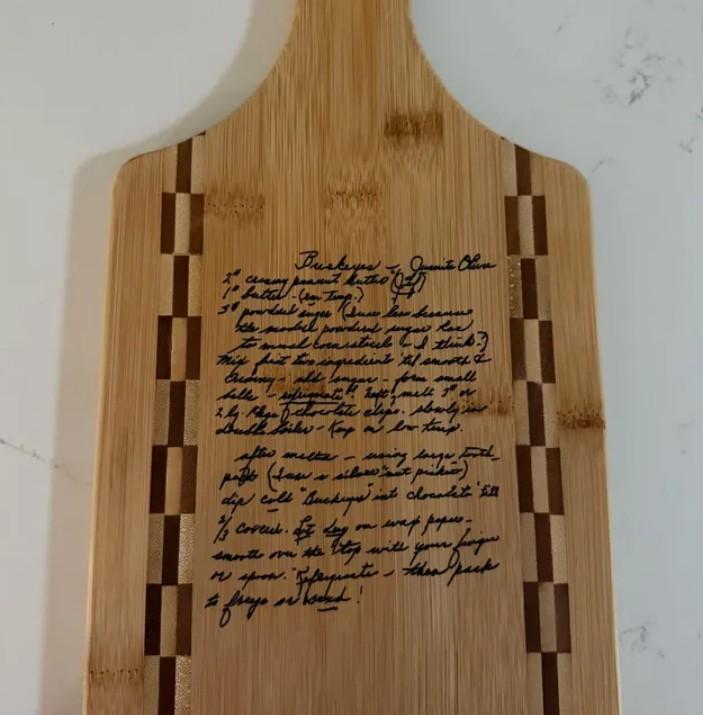 Buckeyes - Juanita Oliver
2# creamy peanut butter (Jif)
1# butter - (rm temp.)
3# powdered sugar (I use less because
the modern powdered sugar has
to much cornstarch - I think?)
Mix first two ingredients 'til smooth &
creamy - add sugar - form small
balls - refrigerate. Next, melt 1# or
2 lg. Pkgs of chocolate chips. slowly in
double boiler - Keep on low temp.
after melted - using large tooth-
pick (I use a silver "nut picker")
dip cold "Buckeyes" in chocolate till
2/3 covered. Let dry on wax paper -
smooth over the top with your finger
or spoon. Refrigerate - then pack
to freeze or send!